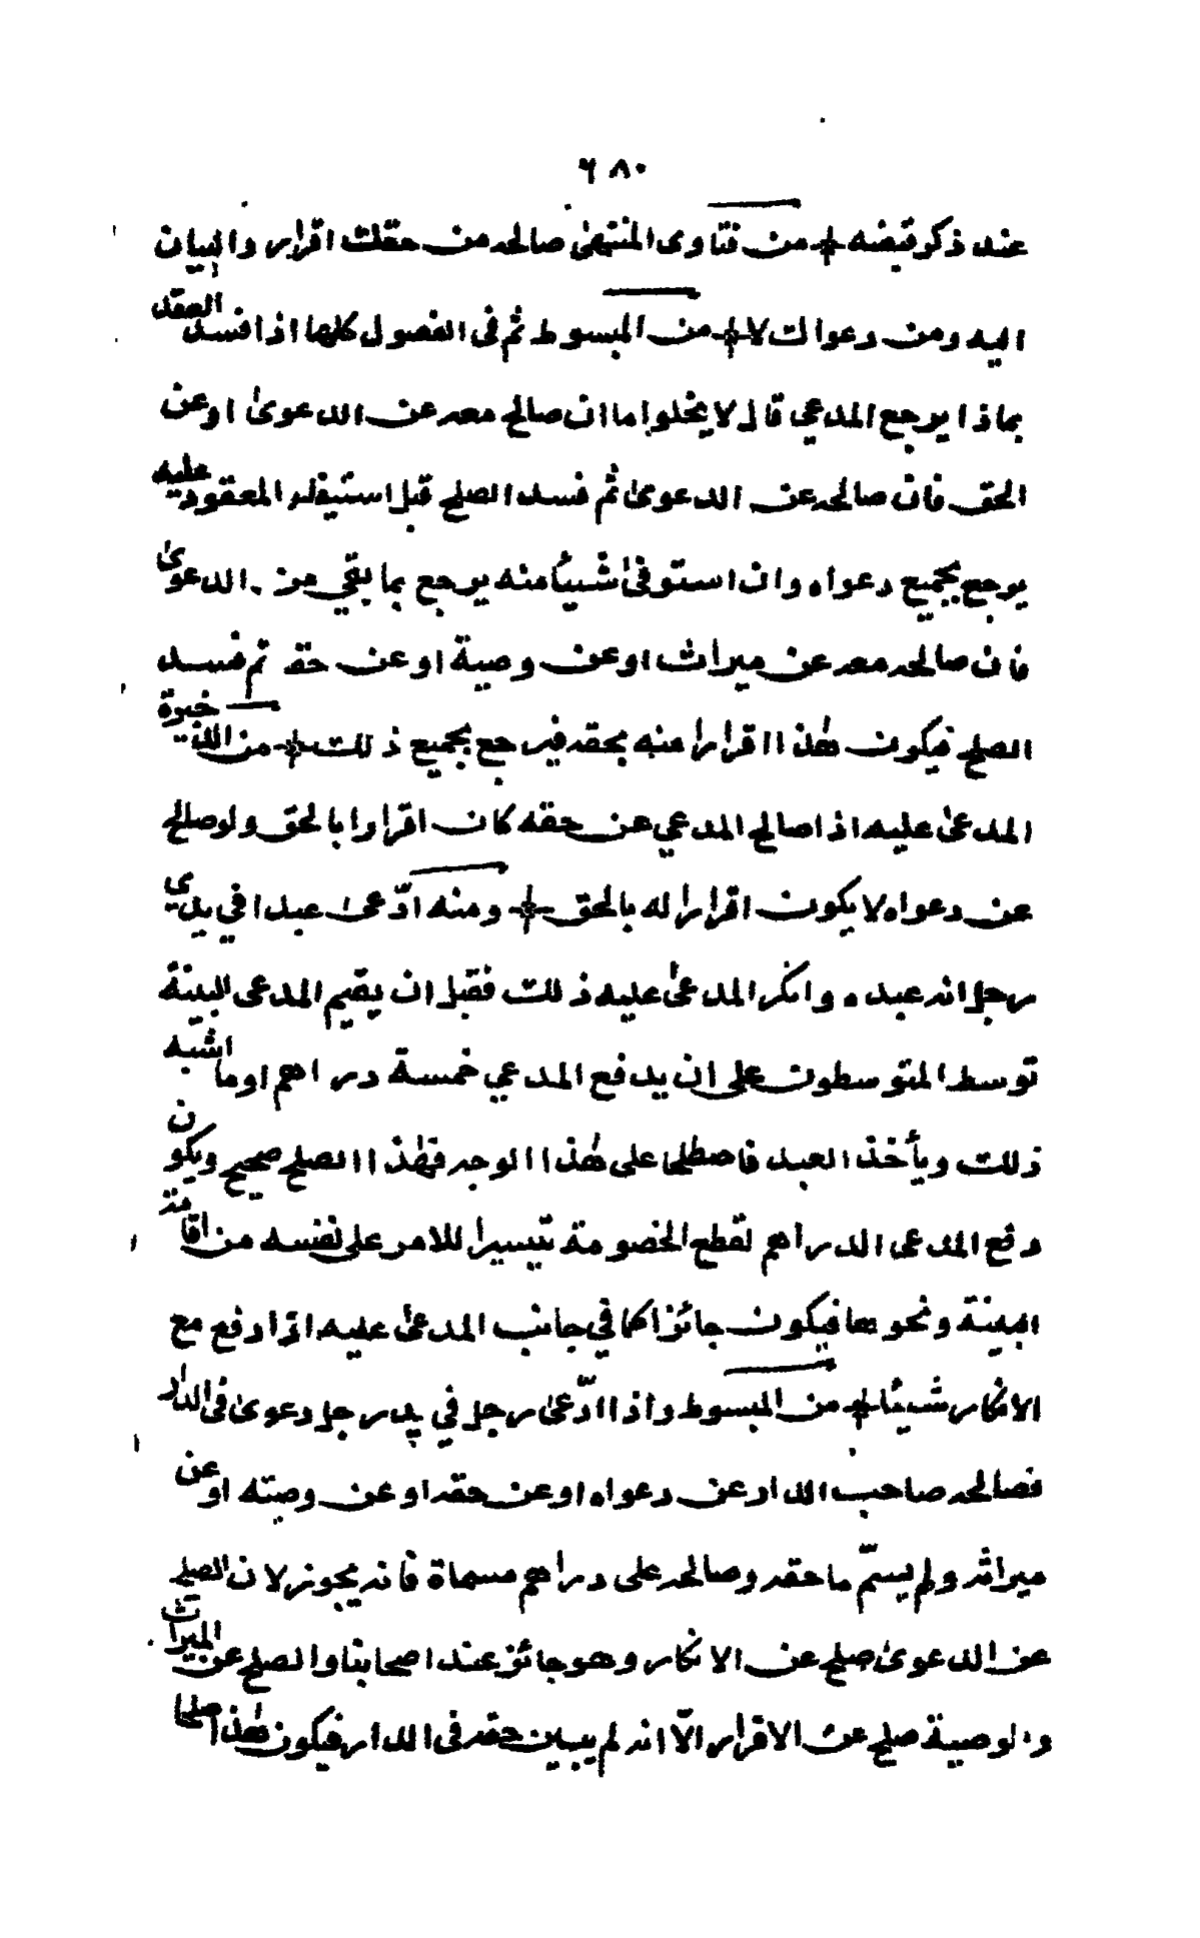 ٦٨٠
عند ذكر قبضه + من فتاوى المنتهى صالحه من حقك اقرار والبيان
اليه ومن دعواك لا + من المبسوط ثم فى الفصول كلها اذا فسد العقد
بماذا يرجع المدعي قال لا يخلوا ما ان صالح معه عن الدعوىٰ او عن
الحق فان صالحه عن الدعوىٰ ثم فسد الصلح قبل استيفاء المعقود عليه
يرجع بجميع دعواه وان استوفىٰ شيئا منه يرجع بما بقي من الدعوىٰ
فان صالحه معه عن ميراث او عن وصية او عن حقه ثم فسد
الصلح فيكون هٰذا اقرارا عنه بحقه فيرجع بجميع ذلك + من الذخيرة
المدعىٰ عليه اذا صالح المدعي عن حقه كان اقرارا بالحق ولو صالح
عن دعواه لا يكون اقرارا له بالحق + ومنه ادّعىٰ عبدا في يدي
رجل انه عبده وانكر المدعىٰ عليه ذلك فقبل ان يقيم المدعى البينة
توسط المتوسطون على ان يدفع المدعي خمسة دراهم او ما اشبه
ذلك ويأخذ العبد فاصطلحا على هٰذا الوجه فهٰذا الصلح صحيح ويكون
دفع المدعى الدراهم لقطع الخصومة تيسيرا للامر على نفسه من اقامة
البينة ونحوها فيكون جائزا كما في جانب المدعىٰ عليه اذا دفع مع
الانكار شيئا + من المبسوط واذا ادّعىٰ رجل في يد رجل دعوىٰ فى الدار
فصالحه صاحب الدار عن دعواه او عن حقه او عن وصيته او عن
ميراثه ولم يسمّ ما حقه وصالحه على دراهم مسماة فانه يجوز لان الصلح
عن الدعوىٰ صلح عن الانكار وهو جائز عند اصحابنا والصلح عن الميراث
والوصية صلح عن الاقرار الّا انه لم يبين حقه فى الدار فيكون هٰذا صلحا